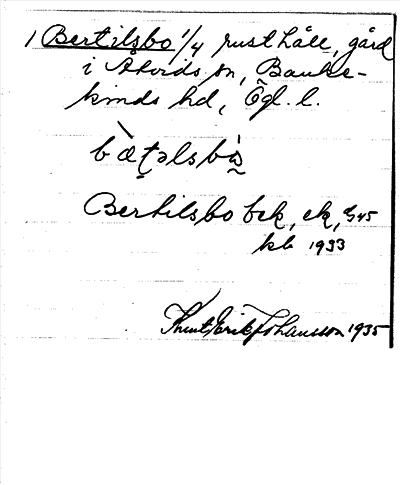 1 Bertilsbo 1/4 rusthåll, gård
i Åtvids sn, Banke-
kinds hd, Ögl. l.
bæt̤əlsbὼ
Bertilsbo bek, ek, 45
kb 1933
Knut Erik Johansson 1935